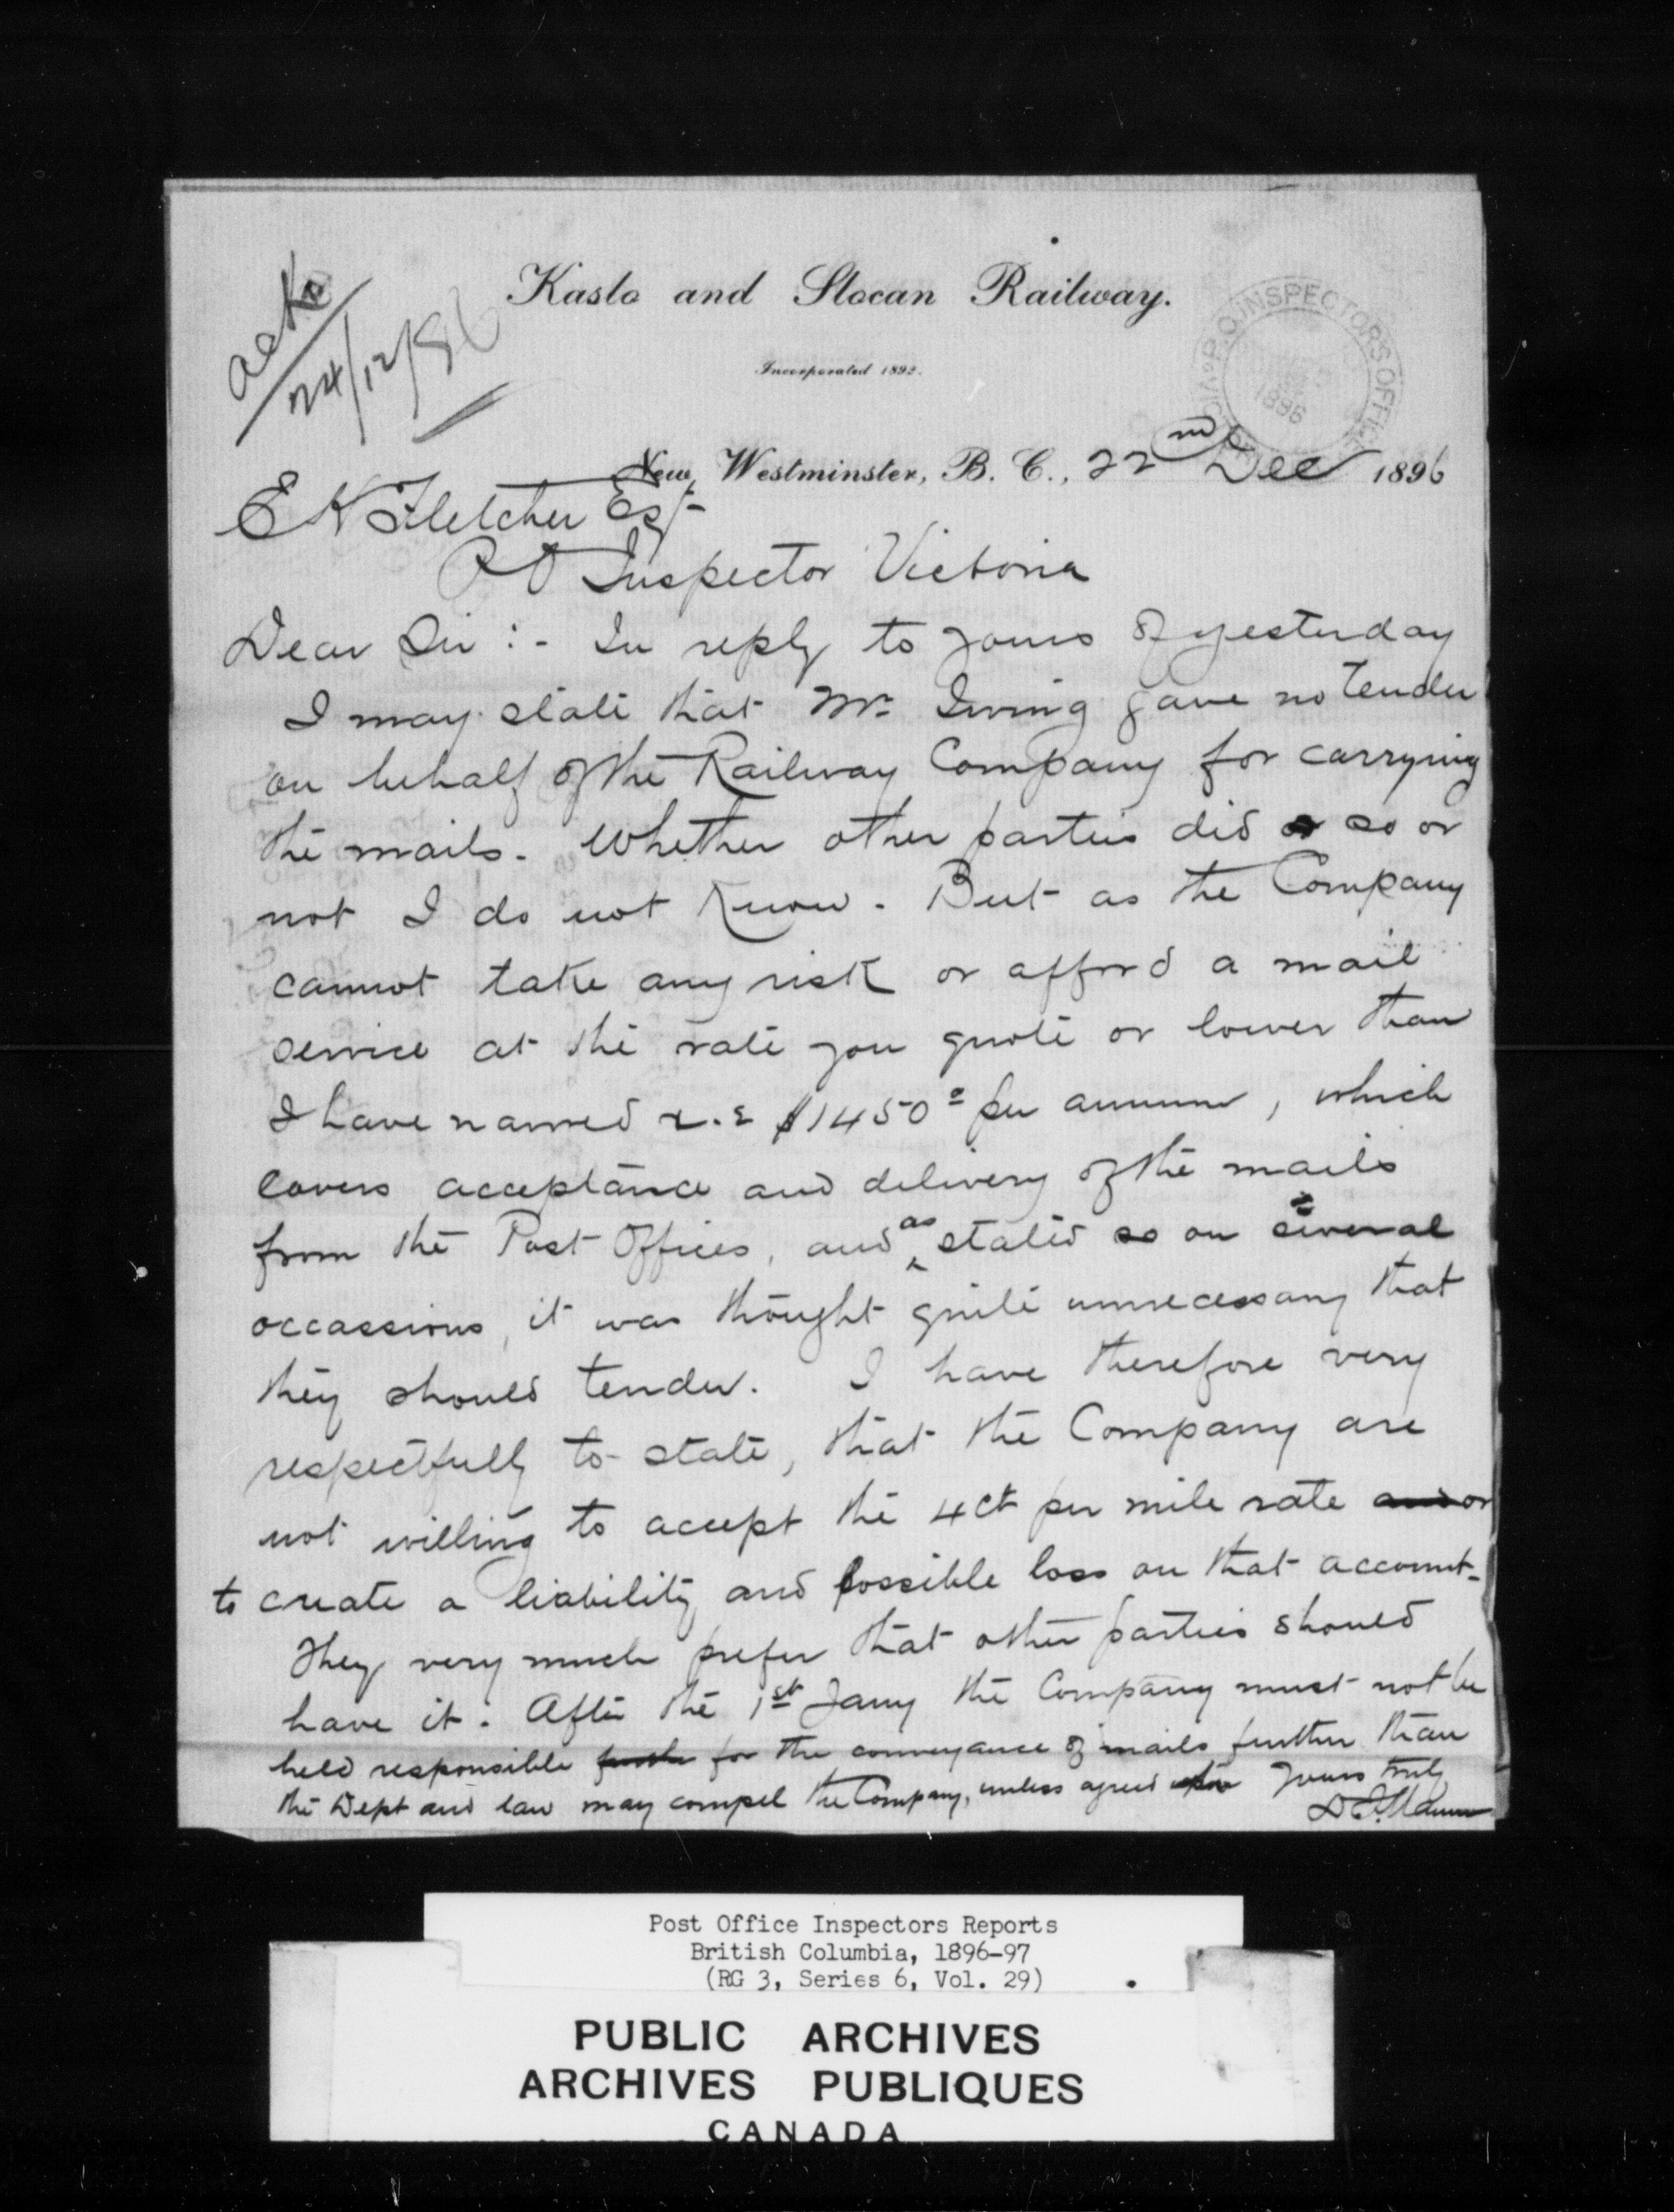 Kaslo and Slocan Railway.
Incorporated 1892.
ackd
24/12/96
P.O. INSPECTORS OFFICE
1896
New Westminster, B. C., 22nd Dec 1896
E H Fletcher Esq
P O Inspector Victoria
Dear Sir :- In reply to yours of yesterday
I may state that Mr. Irving gave no tender
on behalf of the Railway Company for carrying
the mails. Whether other parties did so or
not I do not know. But as the Company
cannot take any risk or afford a mail
service at the rate you quote or lower than
I have named i.e $1450 per annum, which
covers acceptance and delivery of the mails
from the Post Offices, and as stated so on several
occassions, it was thought quite unnecessary that
they should tender. I have therefore very
respectfully to state, that the Company are
not willing to accept the 4ct per mile rate and or
to create a liability and possible loss on that account.
They very much prefer that other parties should
have it. After the 1st Jany the Company must not be
held responsible for the conveyance of mails further than
the Dept and law may compel the Company, unless agreed Yours truly
Post Office Inspectors Reports
British Columbia, 1896-97
(RG 3, Series 6, Vol. 29)
PUBLIC ARCHIVES
ARCHIVES PUBLIQUES
CANADA